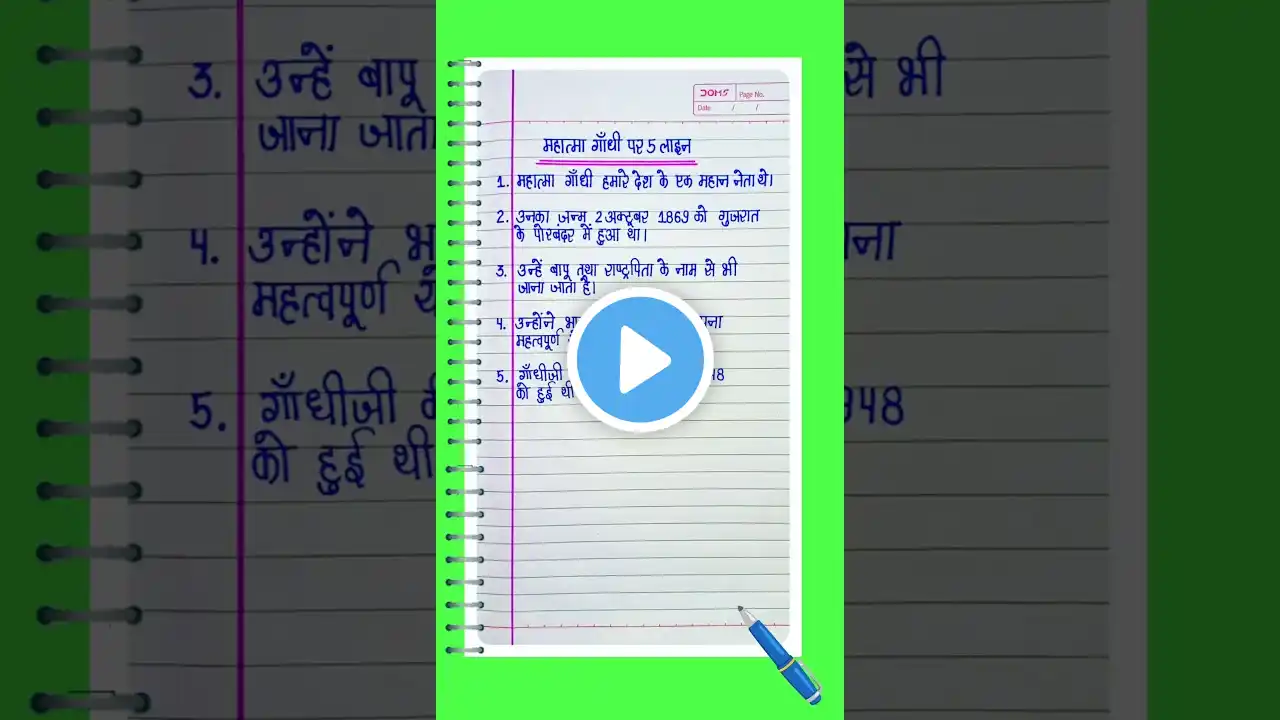 DOMS
Page No.
Date / /
महात्मा गाँधी पर 5 लाइन
1. महात्मा गाँधी हमारे देश के एक महान नेता थे।
2. उनका जन्म 2 अक्टूबर 1869 को गुजरात
के पोरबंदर में हुआ था।
3. उन्हें बापू तथा राष्ट्रपिता के नाम से भी
जाना जाता है।
4. उन्होंने
महत्वपूर्ण
5. गाँधीजी 1948
को हुई थी